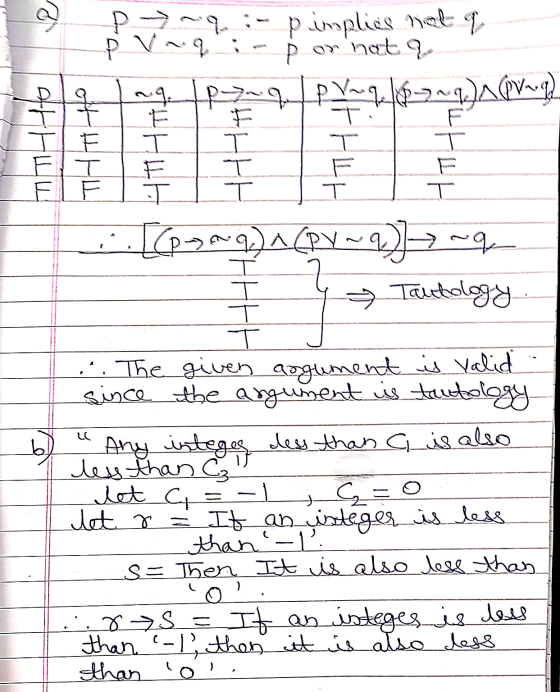 a) p → ~q :- p implies not q
p ∨ ~q :- p or not q
p | q | ~q | p→~q | p∨~q | (p→~q)∧(p∨~q)
T | T | F | F | T | F
T | F | T | T | T | T
F | T | F | T | F | F
F | F | T | T | T | T
∴ [(p→~q)∧(p∨~q)]→~q
T
T
T
T
} ⇒ Tautology.
∴ The given argument is valid
since the argument is tautology
b) "Any integer less than C₁ is also
less than C₃"
let C₁ = -1 , C₂ = 0
let r = If an integer is less
than '-1'.
S = Then It is also less than
'0'.
∴ r→S = If an integer is less
than '-1', then it is also less
than '0'.